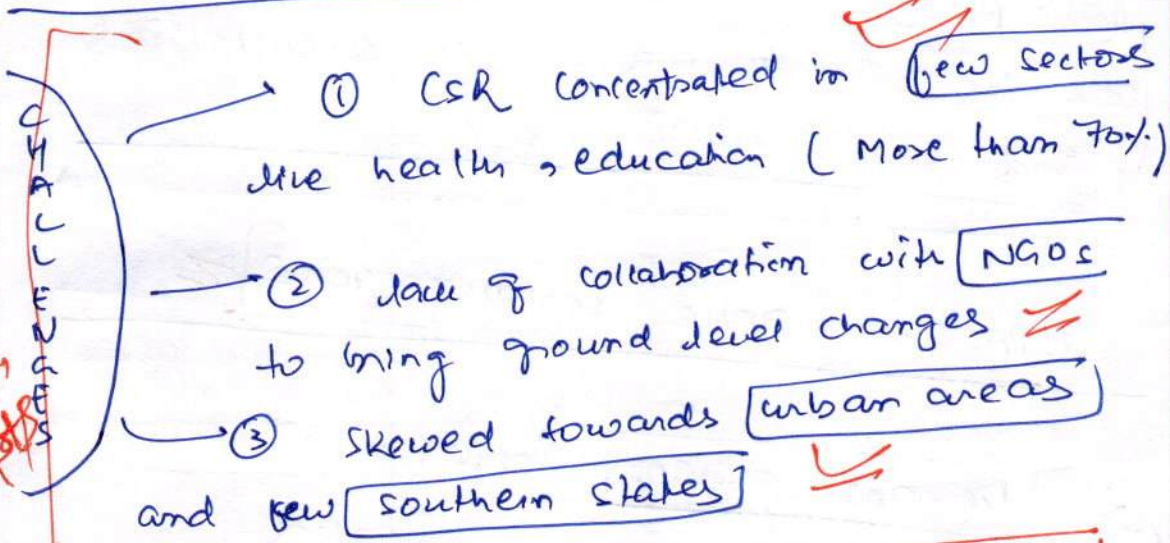 CHALLENGES
① CSR concentrated in few sectors
like health, education (More than 70%)
② lack of collaboration with NGOs
to bring ground level changes
③ skewed towards urban areas
and few southern states